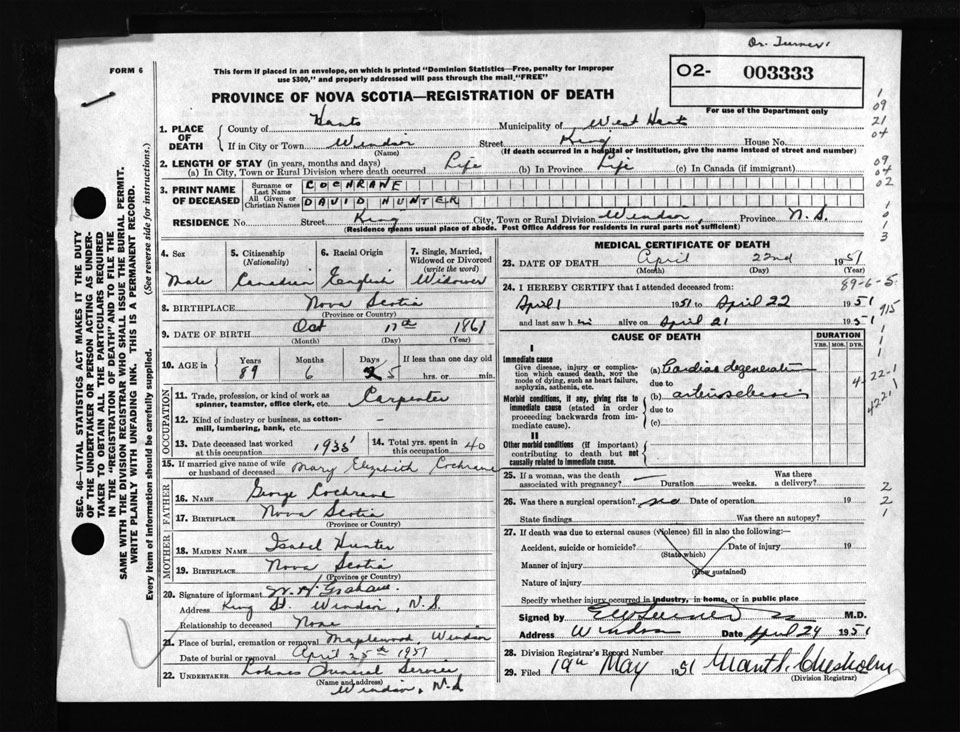 Dr. Turner
FORM 6
This form if placed in an envelope, on which is printed "Dominion Statistics—Free, penalty for improper
use $300," and properly addressed will pass through the mail "FREE"
02- 003333
For use of the Department only
PROVINCE OF NOVA SCOTIA—REGISTRATION OF DEATH
1. PLACE OF DEATH
County of Hants Municipality of West Hants
If in City or Town Windsor Street King House No.
(Name) (If death occurred in a hospital or institution, give the name instead of street and number)
2. LENGTH OF STAY (in years, months and days)
(a) In City, Town or Rural Division where death occurred Life (b) In Province Life (c) In Canada (if immigrant)
3. PRINT NAME OF DECEASED
Surname or Last Name COCHRANE
All Given or Christian Names DAVID HUNTER
RESIDENCE No. Street King City, Town or Rural Division Windsor, Province N.S.
(Residence means usual place of abode. Post Office Address for residents in rural parts not sufficient)
4. Sex
Male
5. Citizenship
(Nationality)
Canadian
6. Racial Origin
English
7. Single, Married,
Widowed or Divorced
(write the word)
Widower
8. BIRTHPLACE Nova Scotia
(Province or Country)
9. DATE OF BIRTH Oct 17th 1861
(Month) (Day) (Year)
10. AGE in Years Months Days If less than one day old
89 6 5 hrs. or min.
OCCUPATION
11. Trade, profession, or kind of work as
spinner, teamster, office clerk, etc. Carpenter
12. Kind of industry or business, as cotton-
mill, lumbering, bank, etc. —
13. Date deceased last worked
at this occupation 1935
14. Total yrs. spent in
this occupation 40
15. If married give name of wife
or husband of deceased Mary Elizabeth Cochrane
FATHER
16. NAME George Cochrane
17. BIRTHPLACE Nova Scotia
(Province or Country)
MOTHER
18. MAIDEN NAME Isabel Hunter
19. BIRTHPLACE Nova Scotia
(Province or Country)
20. Signature of informant W. H. Graham
Address King St. Windsor, N.S.
Relationship to deceased None
21. Place of burial, cremation or removal Maplewood Windsor
Date of burial or removal April 25th 1951
22. UNDERTAKER Lohnes Funeral Service
(Name and address)
Windsor, N.S
MEDICAL CERTIFICATE OF DEATH
23. DATE OF DEATH April 22nd 1951
(Month) (Day) (Year)
24. I HEREBY CERTIFY that I attended deceased from: 89-6-5
April 1 1951 to April 22 1951
and last saw him alive on April 21 1951
CAUSE OF DEATH
DURATION
YRS. MOS. DYS.
I
Immediate cause
Give disease, injury or complica-
tion which caused death, NOT the
mode of dying, such as heart failure,
asphyxia, asthenia, etc.
(a) Cardiac degeneration
due to
Morbid conditions, if any, giving rise to
immediate cause (stated in order
proceeding backwards from im-
mediate cause).
(b) arteriosclerosis
due to
(c)
II
Other morbid conditions (if important)
contributing to death but not
causally related to immediate cause.
25. If a woman, was the death
associated with pregnancy? — Duration weeks. Was there
a delivery?
26. Was there a surgical operation? no Date of operation 19
State findings Was there an autopsy?
27. If death was due to external causes (violence) fill in also the following:
Accident, suicide or homicide? Date of injury 19
(State which)
Manner of injury
(How sustained)
Nature of injury
Specify whether injury occurred in industry, in home, or in public place
Signed by M.D.
Address Windsor Date April 24 1951
28. Division Registrar's Record Number
29. Filed 19th May 1951 Grant S. Chisholm
(Division Registrar)
SEC. 46—VITAL STATISTICS ACT MAKES IT THE DUTY
OF THE UNDERTAKER OR PERSON ACTING AS UNDER-
TAKER TO OBTAIN ALL THE PARTICULARS REQUIRED
IN THE "REGISTRATION OF DEATH" AND TO FILE THE
SAME WITH THE DIVISION REGISTRAR WHO SHALL ISSUE THE BURIAL PERMIT.
WRITE PLAINLY WITH UNFADING INK. THIS IS A PERMANENT RECORD.
Every item of information should be carefully supplied. (See reverse side for instructions.)
1
09
21
04
09
04
02
1
0
1
3
915
1
1
4-22-1
4221
2
2
1